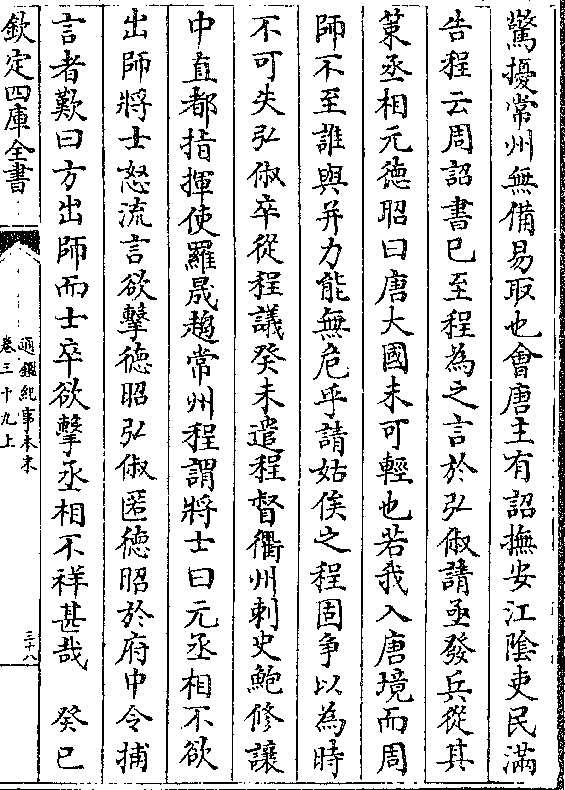 驚擾常州無備易取也會唐主有詔撫安江陰吏民滿
告程云周詔書已至程為之言於弘俶請亟發兵從其
策丞相元德昭曰唐大國未可輕也若我入唐境而周
師不至誰與并力能無危乎請姑俟之程固爭以為時
不可失弘俶卒從程議癸未遣程督衢州刺史鮑修讓
中直都指揮使羅晟趨常州程謂將士曰元丞相不欲
出師將士怒流言欲擊德昭弘俶匿德昭於府中令捕
言者歎曰方出師而士卒欲擊丞相不祥甚哉　癸巳
欽定四庫全書
通鑑紀事本末
卷三十九上
三十八